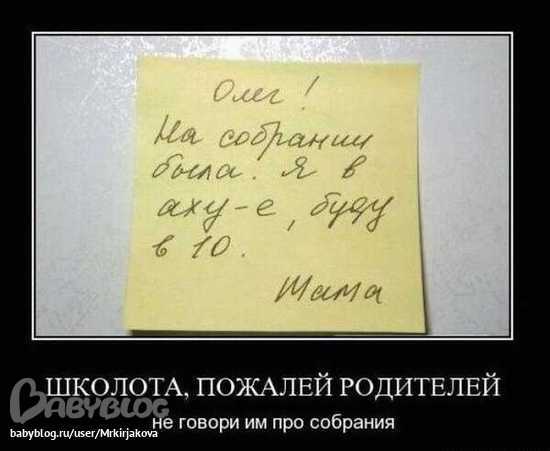 Олег!
На собрании
была. Я в
аху-е, буду
в 10.
Мама
ШКОЛОТА, ПОЖАЛЕЙ РОДИТЕЛЕЙ
BABYBLOG
не говори им про собрания
babyblog.ru/user/Mrkirjakova